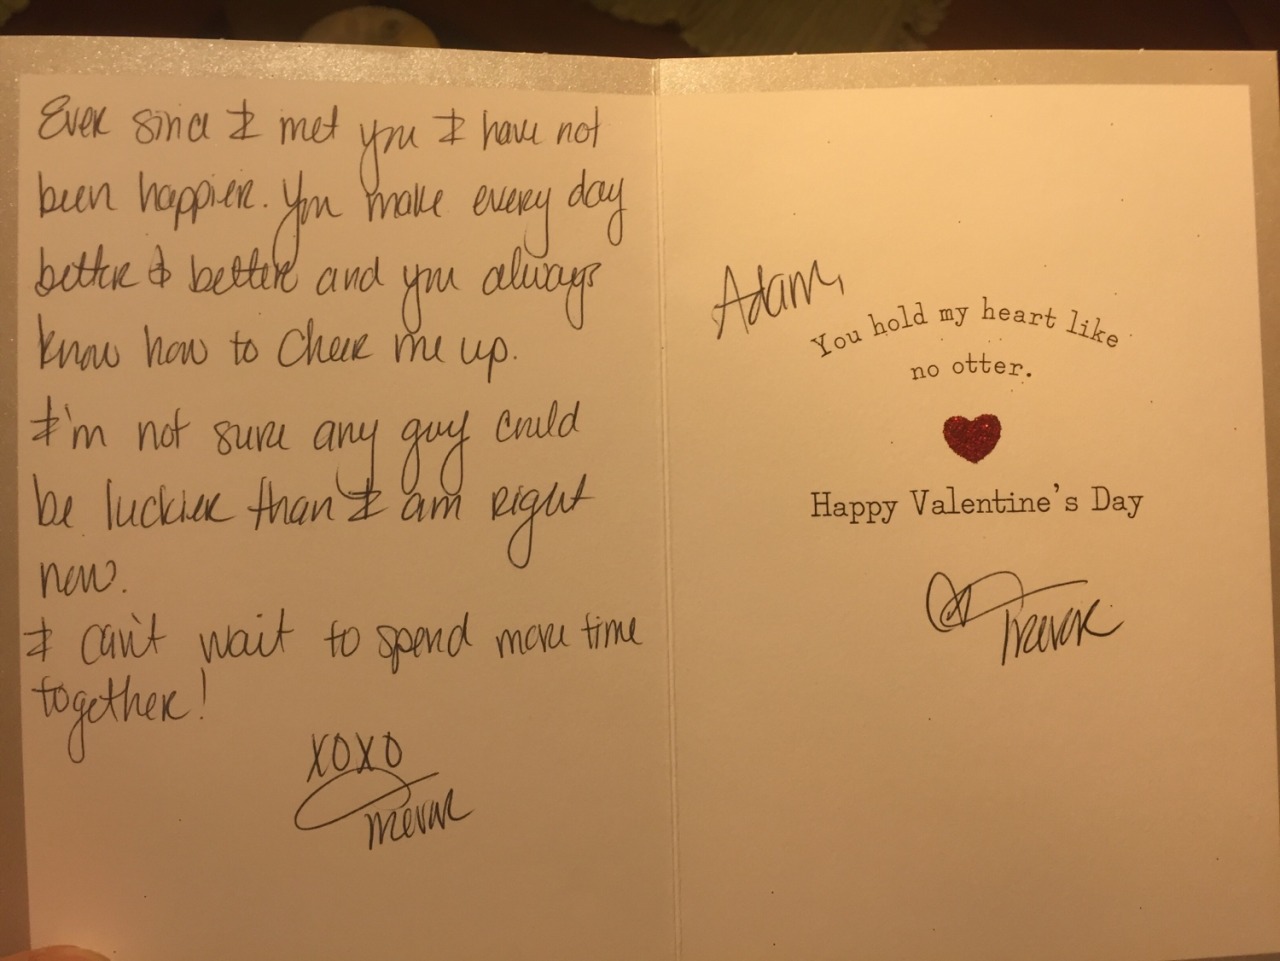 Ever since I met you I have not
been happier. You make every day
better & better and you always
know how to cheer me up.
I'm not sure any guy could
be luckier than I am right
now.
I can't wait to spend more time
together!
XOXO
Trevor
Adam,
You hold my heart like
no otter.
Happy Valentine's Day
Trevor